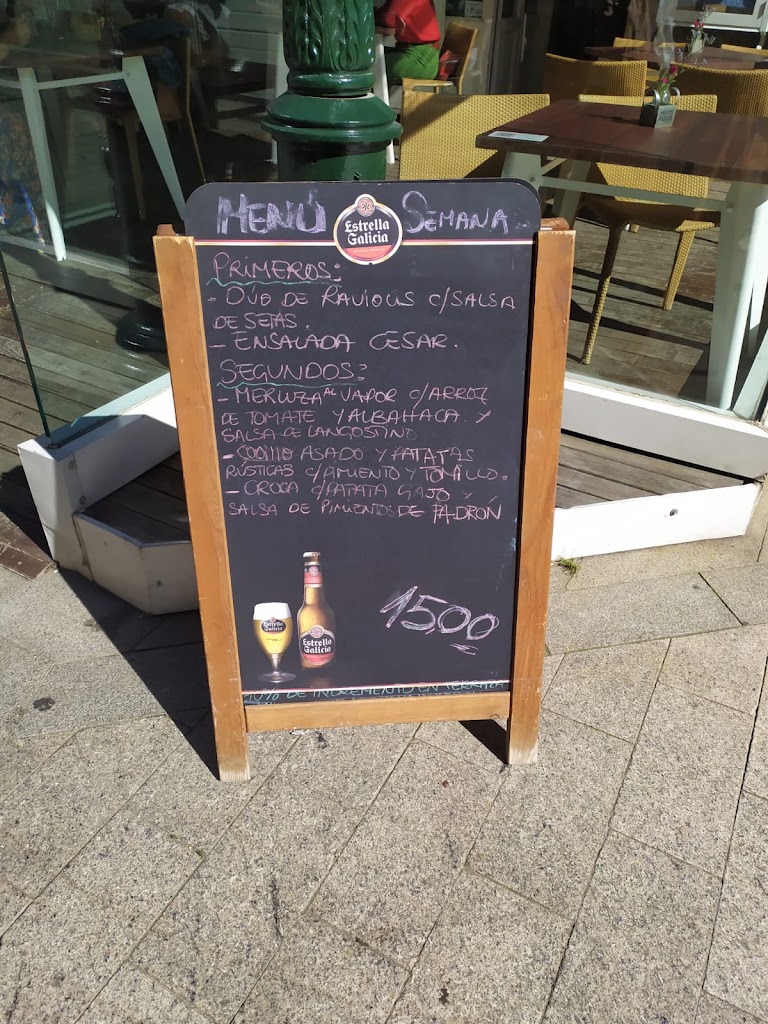 MENÚ Estrella Galicia SEMANA
PRIMEROS:
- DÚO DE RAVIOLIS C/SALSA
DE SETAS.
- ENSALADA CESAR.
SEGUNDOS:
- MERLUZA AL VAPOR C/ARROZ
DE TOMATE Y ALBAHACA Y
SALSA DE LANGOSTINO
- CODILLO ASADO Y PATATAS
RÚSTICAS C/PIMIENTO Y TOMILLO.
- CROCA C/PATATA GAJO Y
SALSA DE PIMIENTOS DE PADRÓN
15,00
Estrella Galicia
Estrella Galicia
10% DE INCREMENTO EN TERRAZA